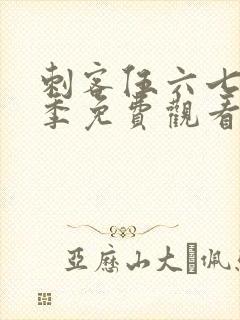 刺客伍六七
季免費觀看
亞歷山大·佩